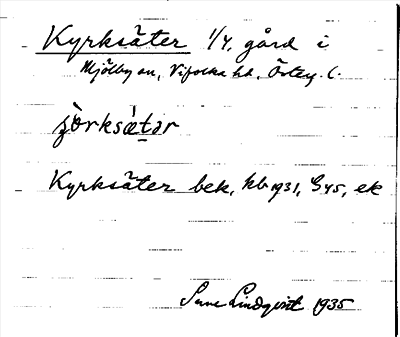 Kyrksäter 1/4, gård i
Mjölby sn, Vifolka hd, Östey. l.
Kyrksäter bek. kb 1931, G45, ek
Sune Lindqvist 1935